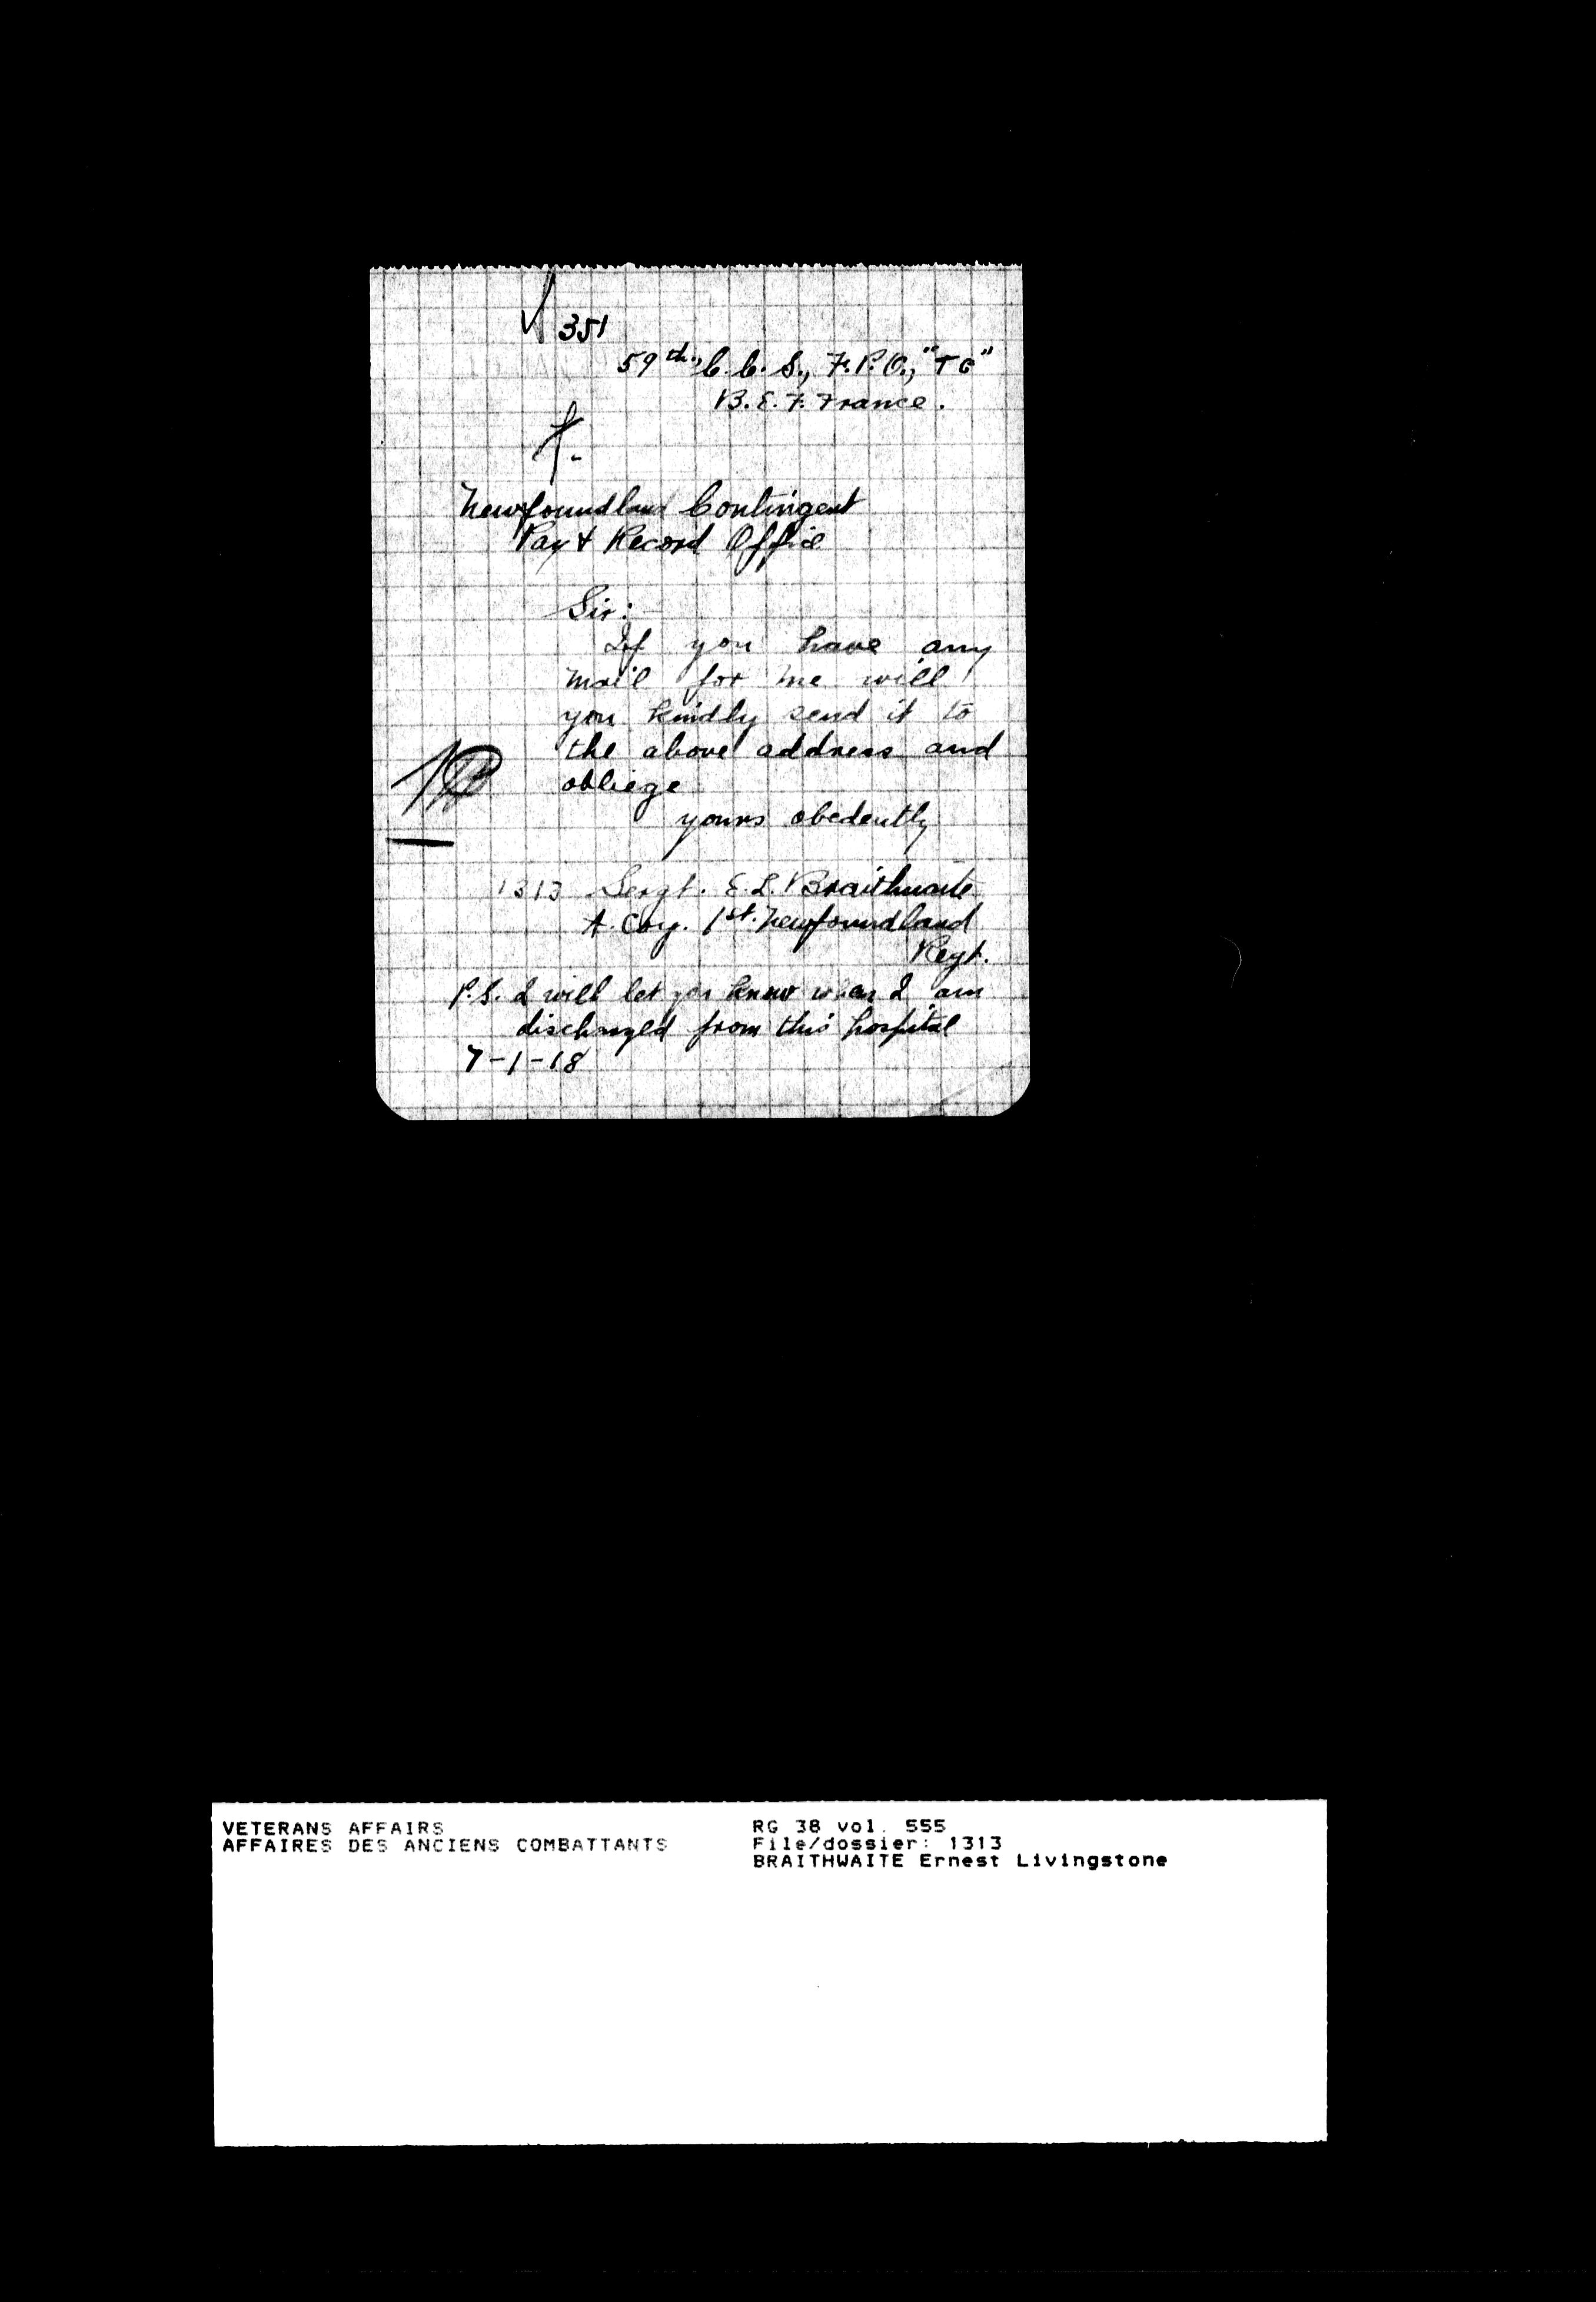 351
59th., C.C.S., F.P.O., "T6"
B.E.F. France.
Newfoundland Contingent
Pay & Record Office
Sir:-
If you have any
mail for me will
you kindly send it to
the above address and
obliege
yours obediently
1313 Sergt. E.L. Braithwaite
A. Coy. 1st. Newfoundland
Regt.
P.S. I will let you know when I am
discharged from this hospital
7-1-18
VETERANS AFFAIRS
AFFAIRES DES ANCIENS COMBATTANTS
RG 38 vol. 555
File/dossier: 1313
BRAITHWAITE Ernest Livingstone